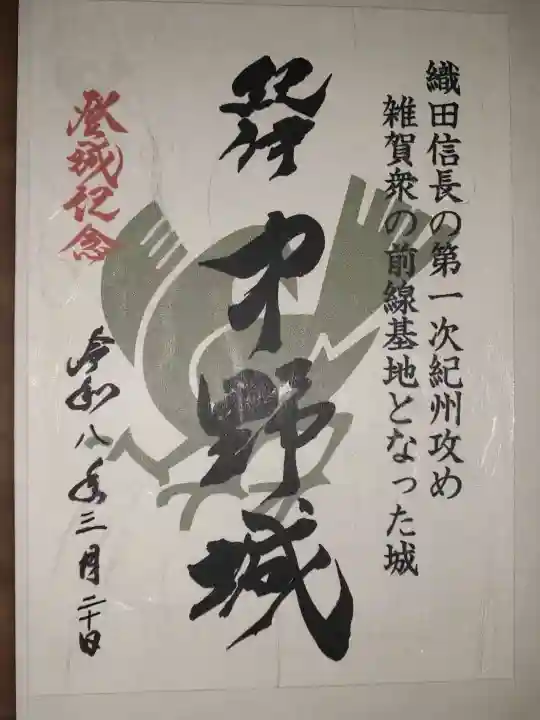 織田信長の第一次紀州攻め
雑賀衆の前線基地となった城
紀伊
中野城
登城記念
令和八年三月二十日